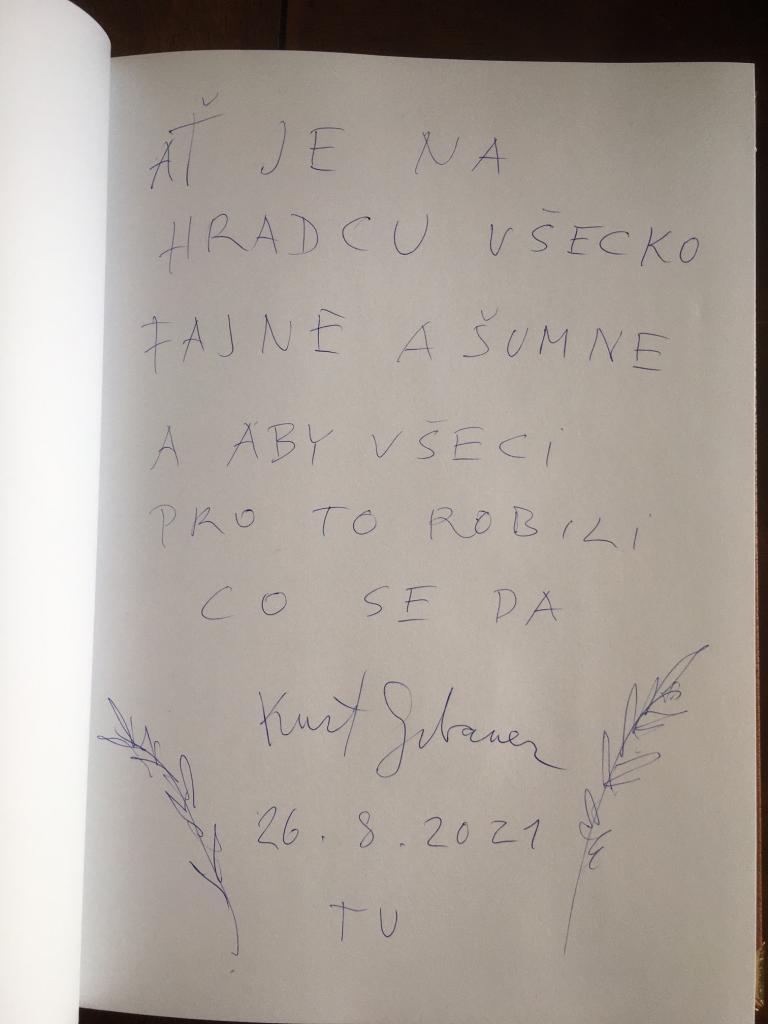 AŤ JE NA
HRADCU VŠECKO
FAJNE A ŠUMNE
A ABY VŠECI
PRO TO ROBILI
CO SE DA
Kurt Gebauer
26. 8. 2021
TU